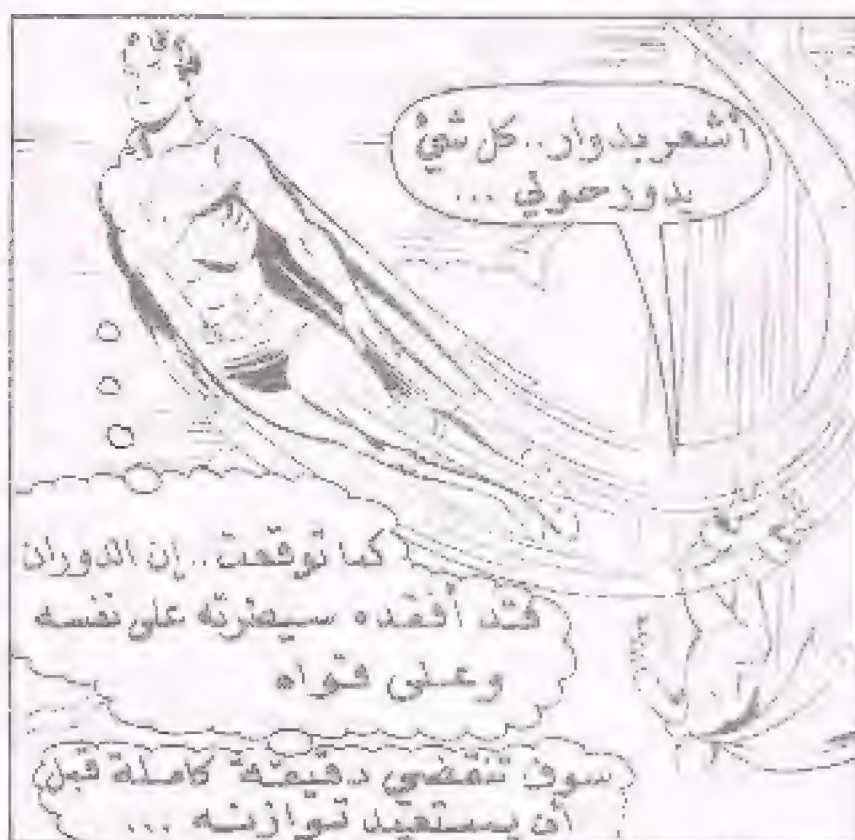 أشعر بدوار.. كل شيء
يدور حولي ...
كما توقعت.. إن الدوران
قد أفقده سيطرته على نفسه
وعلى قواه
سوف تنقضي دقيقة كاملة قبل
أن يستعيد توازنه ...